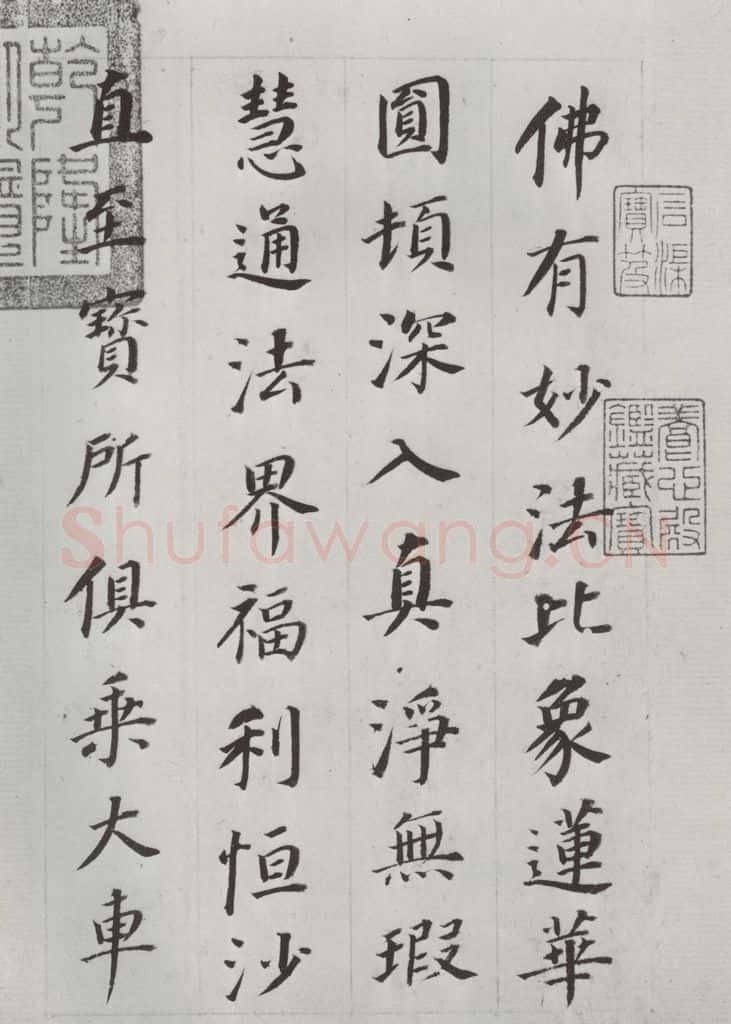 佛有妙法比象蓮華
圓頓深入真淨無瑕
慧通法界福利恒沙
直至寶所俱乗大車
石渠寶笈
養心殿鑑藏寶
乾隆
Shufawang.CN